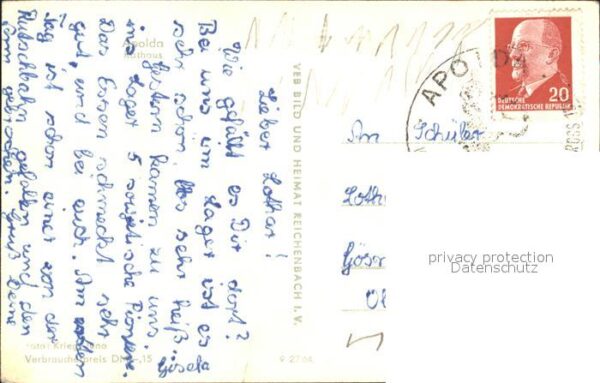 Apolda
Rathaus
Lieber Lothar!
Wie gefällt es Dir dort?
Bei uns im Lager ist es
sehr schön, bloß sehr heiß.
Gestern kamen zu uns
ins Lager 5 sowjetische Pioniere.
Das Essen schmeckt sehr
gut, und bei euch. Am ersten
Tag ist schon einer von der
Rutschbahn gefallen und den
Arm gebrochen. Gruß Deine
Gisela
Foto: Krieg, Jena
Verbraucherpreis DM -,15
9 27 64
VEB BILD UND HEIMAT REICHENBACH I. V.
APOLDA
DEUTSCHE
DEMOKRATISCHE REPUBLIK
20
An Schüler
Loth
Göss
privacy protection
Datenschutz